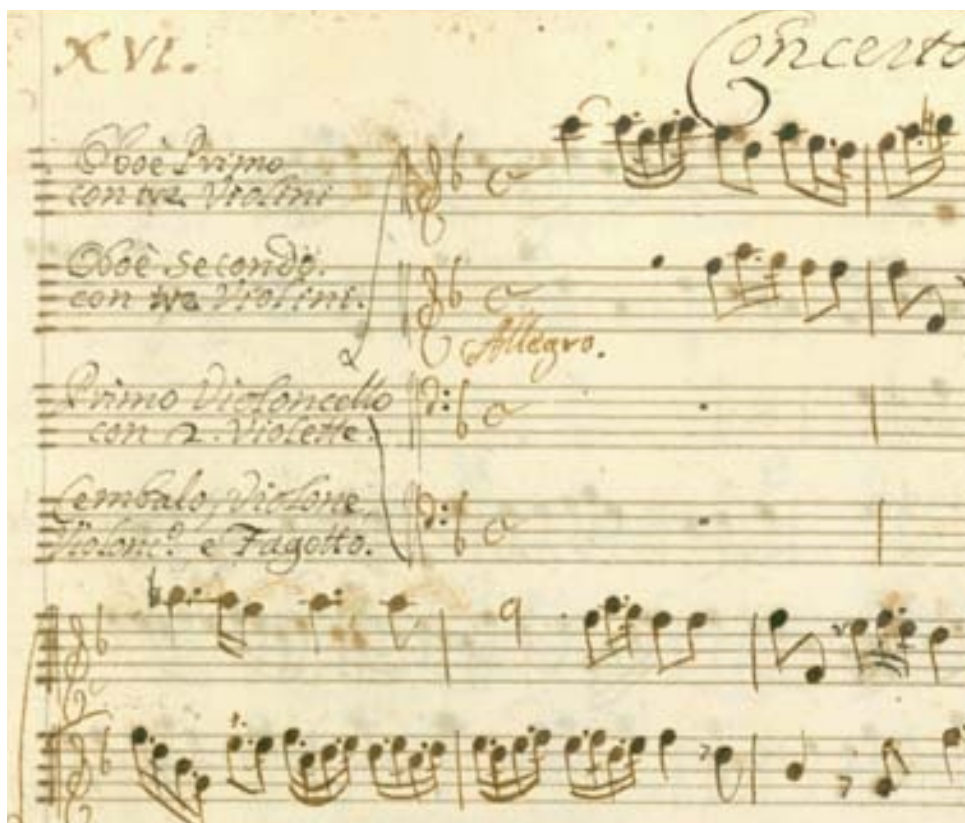 XVI.
Concerto
Oboè Primo
con tre Violini
Oboè Secondo.
con tre Violini.
Allegro.
Primo Violoncello
con 2. Violette.
Cembalo, Violone,
e Fagotto.